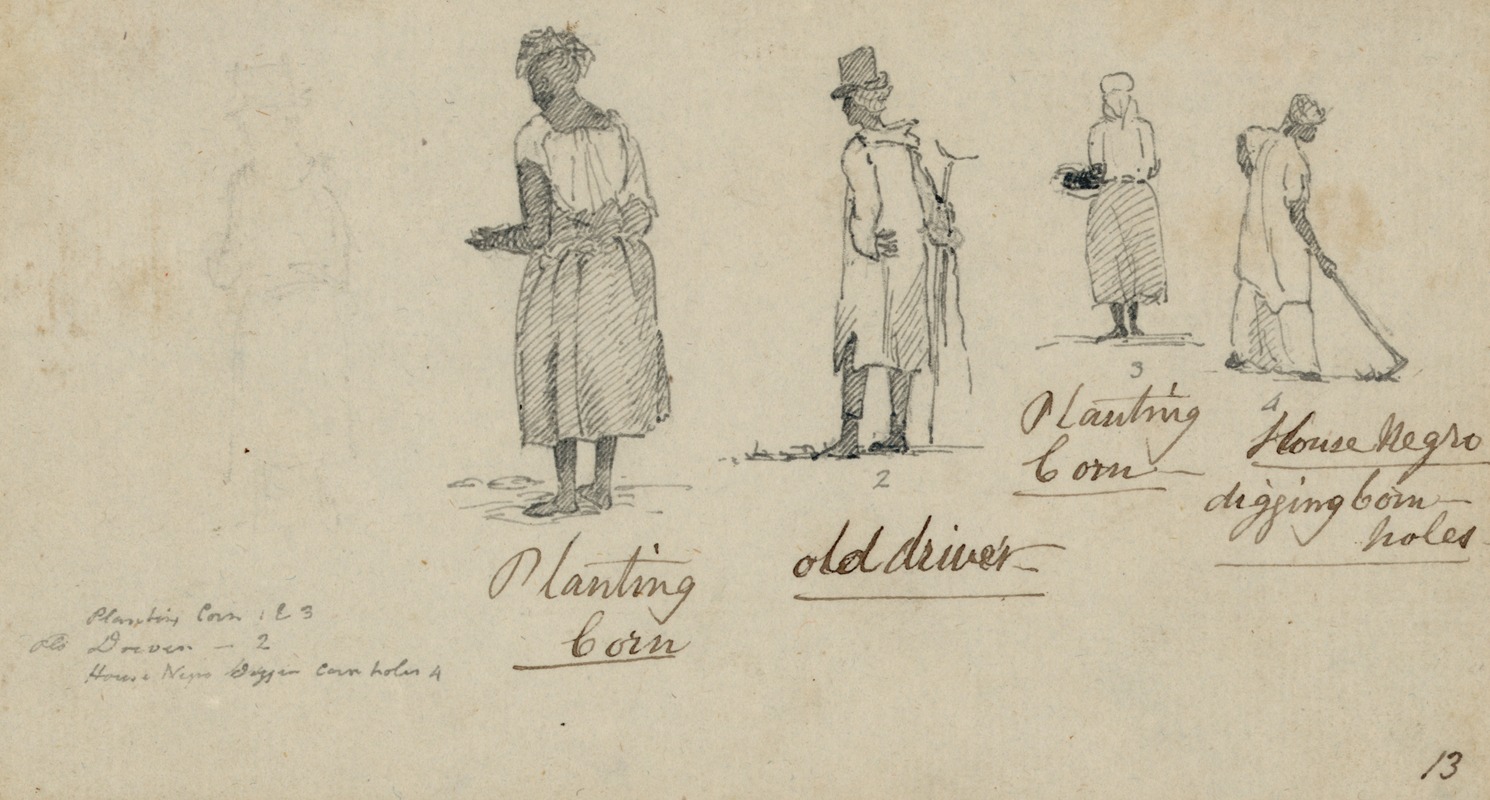 2
3
4
Planting
Corn
old driver
Planting
Corn
House Negro
digging Corn
holes
Planting Corn 1 & 3
old Driver — 2
House Negro Diggin Corn holes 4
13